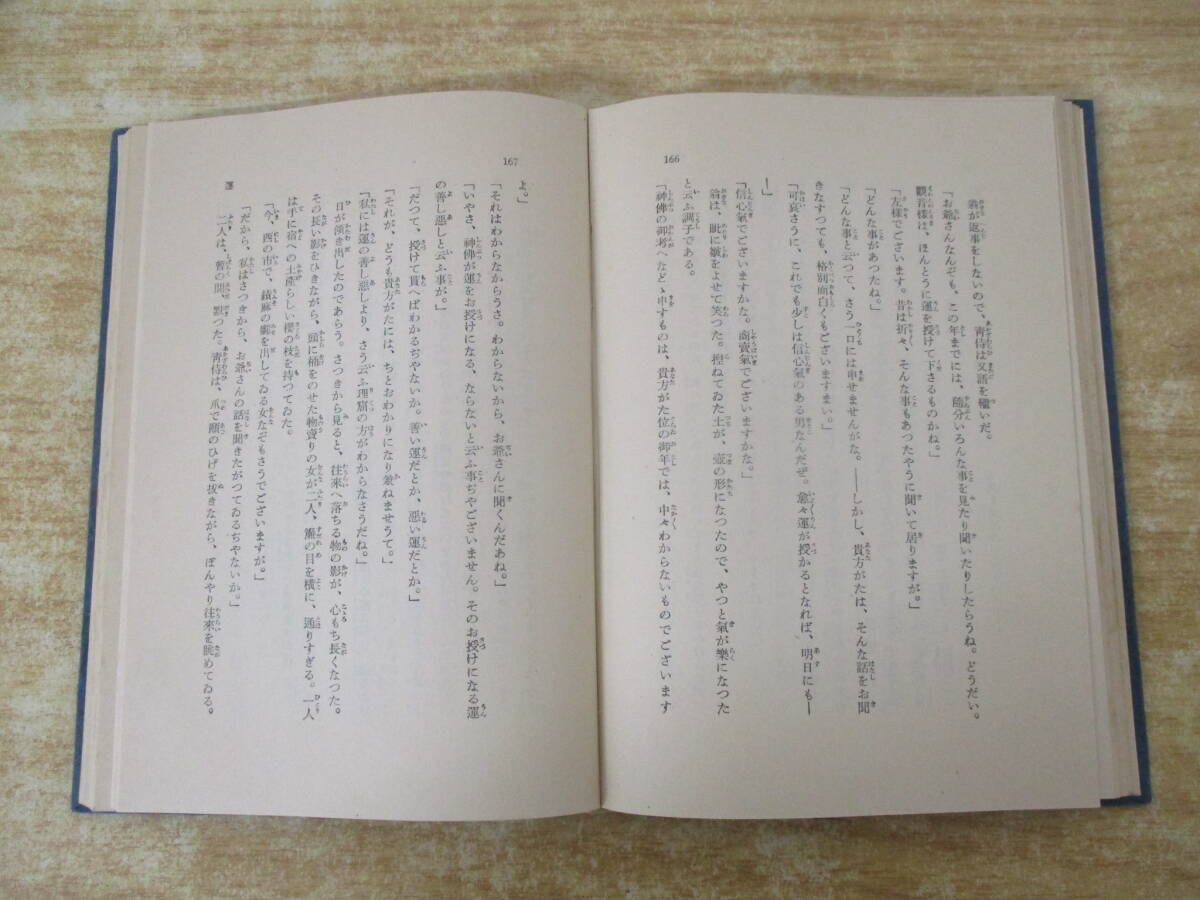 166
翁が返事をしないので、青侍は又語を継いだ。
「お爺さんなんぞも、この年までには、随分いろんな事を見たり聞いたりしたらうね。どうだい。
観音様は、ほんとうに運を授けて下さるものかね。」
「左様でございます。昔は折々、そんな事もあつたやうに聞いて居りますが。」
「どんな事があつたね。」
「どんな事と云つて、さう一口には申せませんがな。――しかし、貴方がたは、そんな話をお聞
きなすつても、格別面白くもございますまい。」
「可哀さうに、これでも少しは信心氣のある男なんだぜ。愈々運が授かるとなれば、明日にも―
―」
「信心氣でございますかな。商賣氣でございますかな。」
翁は、眦に皺をよせて笑つた。捏ねてゐた土が、壺の形になつたので、やつと氣が樂になつた
と云ふ調子である。
「神佛の御考へなどゝ申すものは、貴方がた位の御年では、中々わからないものでございます
167
よ。」
「それはわからなからうさ。わからないから、お爺さんに聞くんだあね。」
「いやさ、神佛が運をお授けになる、ならないと云ふ事ぢやございません。そのお授けになる運
の善し悪しと云ふ事が。」
「だつて、授けて貰へばわかるぢやないか。善い運だとか、悪い運だとか。」
「それが、どうも貴方がたには、ちとおわかりになり兼ねませうて。」
「私には運の善し悪しより、さう云ふ理窟の方がわからなさうだね。」
日が傾き出したのであらう。さつきから見ると、往來へ落ちる物の影が、心もち長くなつた。
その長い影をひきながら、頭に桶をのせた物賣りの女が二人、簾の目を横に、通りすぎる。一人
は手に宿への土産らしい櫻の枝を持つてゐた。
「今、西の市で、績麻の鄽を出してゐる女なぞもさうでございますが。」
「だから、私はさつきから、お爺さんの話を聞きたがつてゐるぢやないか。」
二人は、暫の間、默つた。青侍は、爪で頤のひげを抜きながら、ぼんやり往來を眺めてゐる。
運